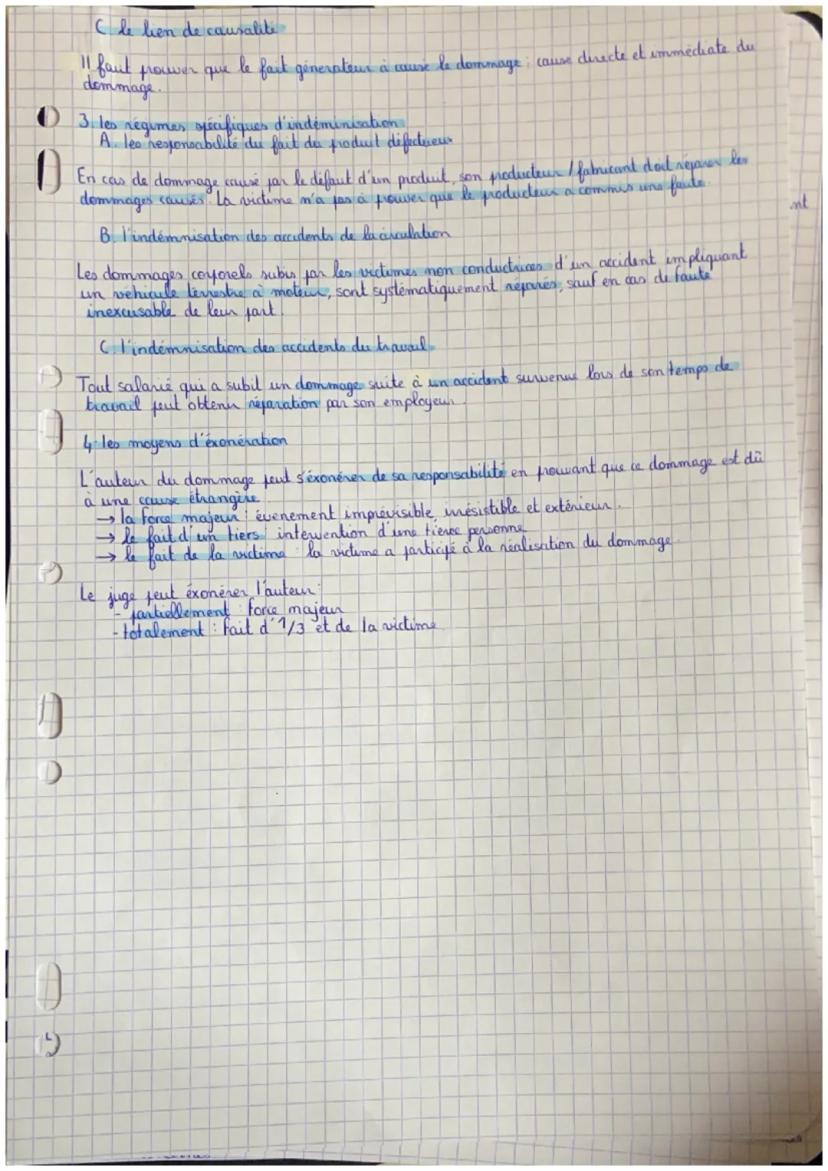 C le lien de causalité
Il faut prouver que le fait générateur à causé le dommage : cause directe et immédiate du
dommage.
3. les régimes spécifiques d'indéminisation
A. les responsabilité du fait du produit défectueux
En cas de dommage causé par le défaut d'un produit, son producteur / fabricant doit réparer les
dommages causés. La victime n'a pas à prouver que le producteur a commis une faute.
B. l'indémnisation des accidents de la circulation
Les dommages corporels subis par les victimes non conductrices d'un accident impliquant
un véhicule terrestre à moteur, sont systématiquement réparés, sauf en cas de faute
inexcusable de leur part.
C. l'indémnisation des accidents du travail
Tout salarié qui a subit un dommage suite à un accident survenue lors de son temps de
travail peut obtenir réparation par son employeur.
4. les moyens d'éxonération
L'auteur du dommage peut s'éxonérer de sa responsabilité en prouvant que ce dommage est dû
à une cause étrangère.
→ la force majeur : évenement imprévisible, irrésistible et extérieur.
→ le fait d'un tiers : intervention d'une tierce personne
→ le fait de la victime : la victime a participé à la réalisation du dommage.
Le juge peut éxonérer l'auteur :
- partiellement : force majeur
- totalement : fait d'1/3 et de la victime
nt